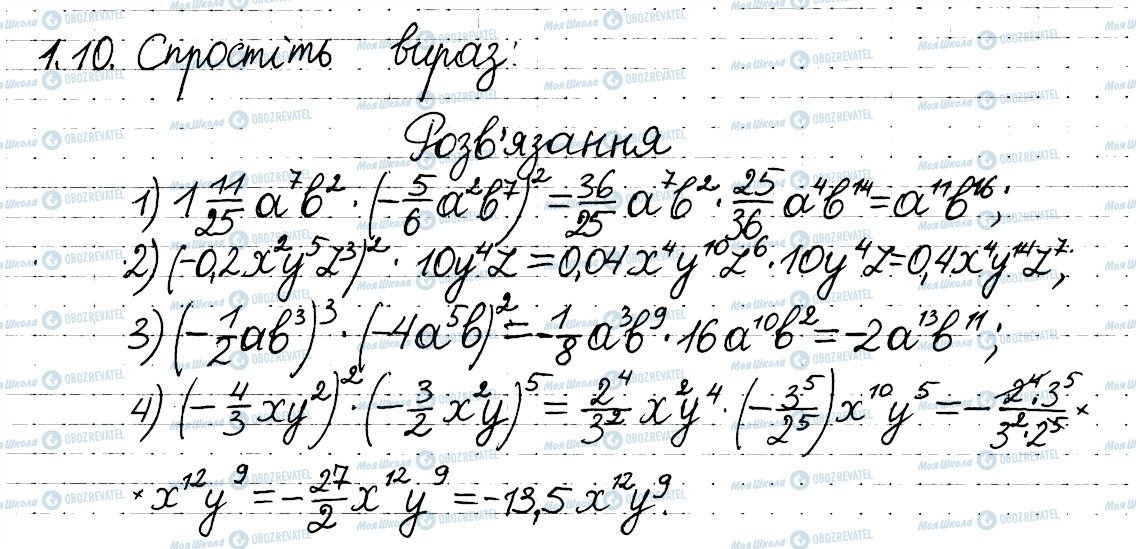 1.10. Спростіть вираз:
Розв'язання
1) 1 11/25 a⁷b² · (-5/6 a²b⁷)² = 36/25 a⁷b² · 25/36 a⁴b¹⁴ = a¹¹b¹⁶;
2) (-0,2x²y⁵z³)² · 10y⁴z = 0,04x⁴y¹⁰z⁶ · 10y⁴z = 0,4x⁴y¹⁴z⁷;
3) (-1/2 ab³)³ · (-4a⁵b)² = -1/8 a³b⁹ · 16a¹⁰b² = -2a¹³b¹¹;
4) (-4/3 xy²)² · (-3/2 x²y)⁵ = 2⁴/3² x²y⁴ · (-3⁵/2⁵) x¹⁰y⁵ = - 2⁴·3⁵/3²·2⁵ ×
× x¹²y⁹ = -27/2 x¹²y⁹ = -13,5 x¹²y⁹.